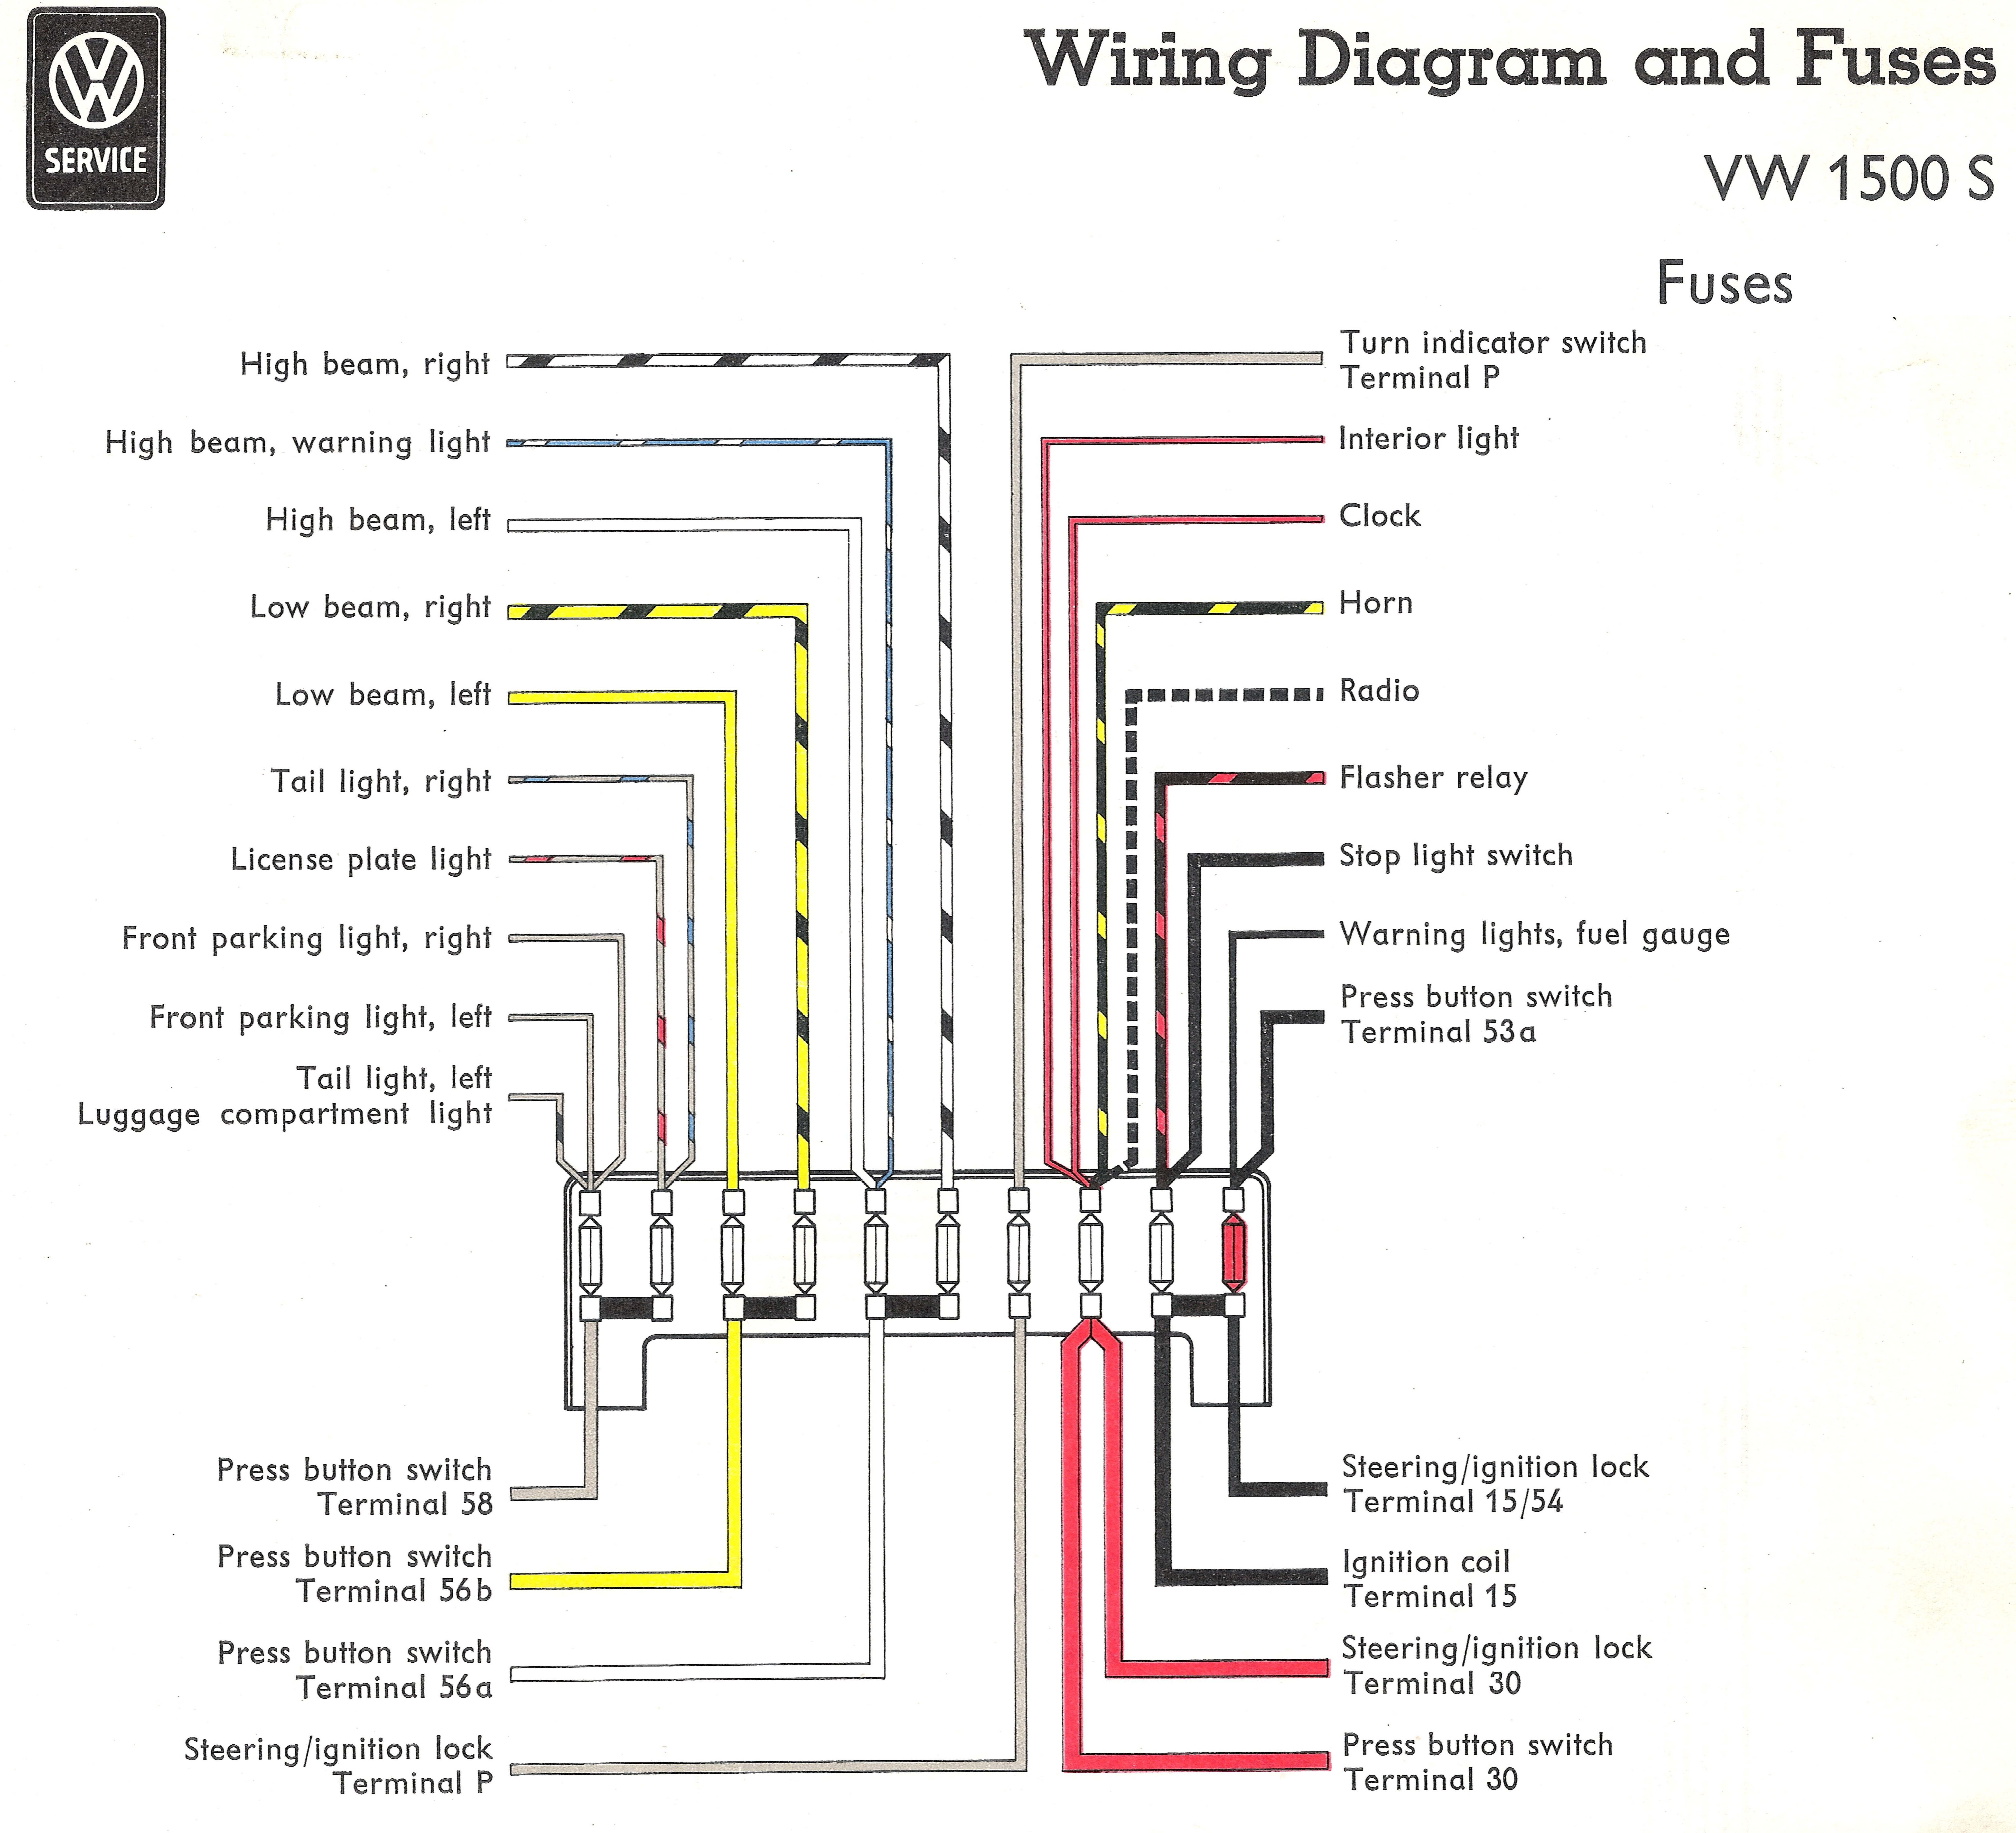 SERVICE
Wiring Diagram and Fuses
VW 1500 S
Fuses
High beam, right
High beam, warning light
High beam, left
Low beam, right
Low beam, left
Tail light, right
License plate light
Front parking light, right
Front parking light, left
Tail light, left
Luggage compartment light
Turn indicator switch
Terminal P
Interior light
Clock
Horn
Radio
Flasher relay
Stop light switch
Warning lights, fuel gauge
Press button switch
Terminal 53a
Press button switch
Terminal 58
Press button switch
Terminal 56b
Press button switch
Terminal 56a
Steering/ignition lock
Terminal P
Steering/ignition lock
Terminal 15/54
Ignition coil
Terminal 15
Steering/ignition lock
Terminal 30
Press button switch
Terminal 30